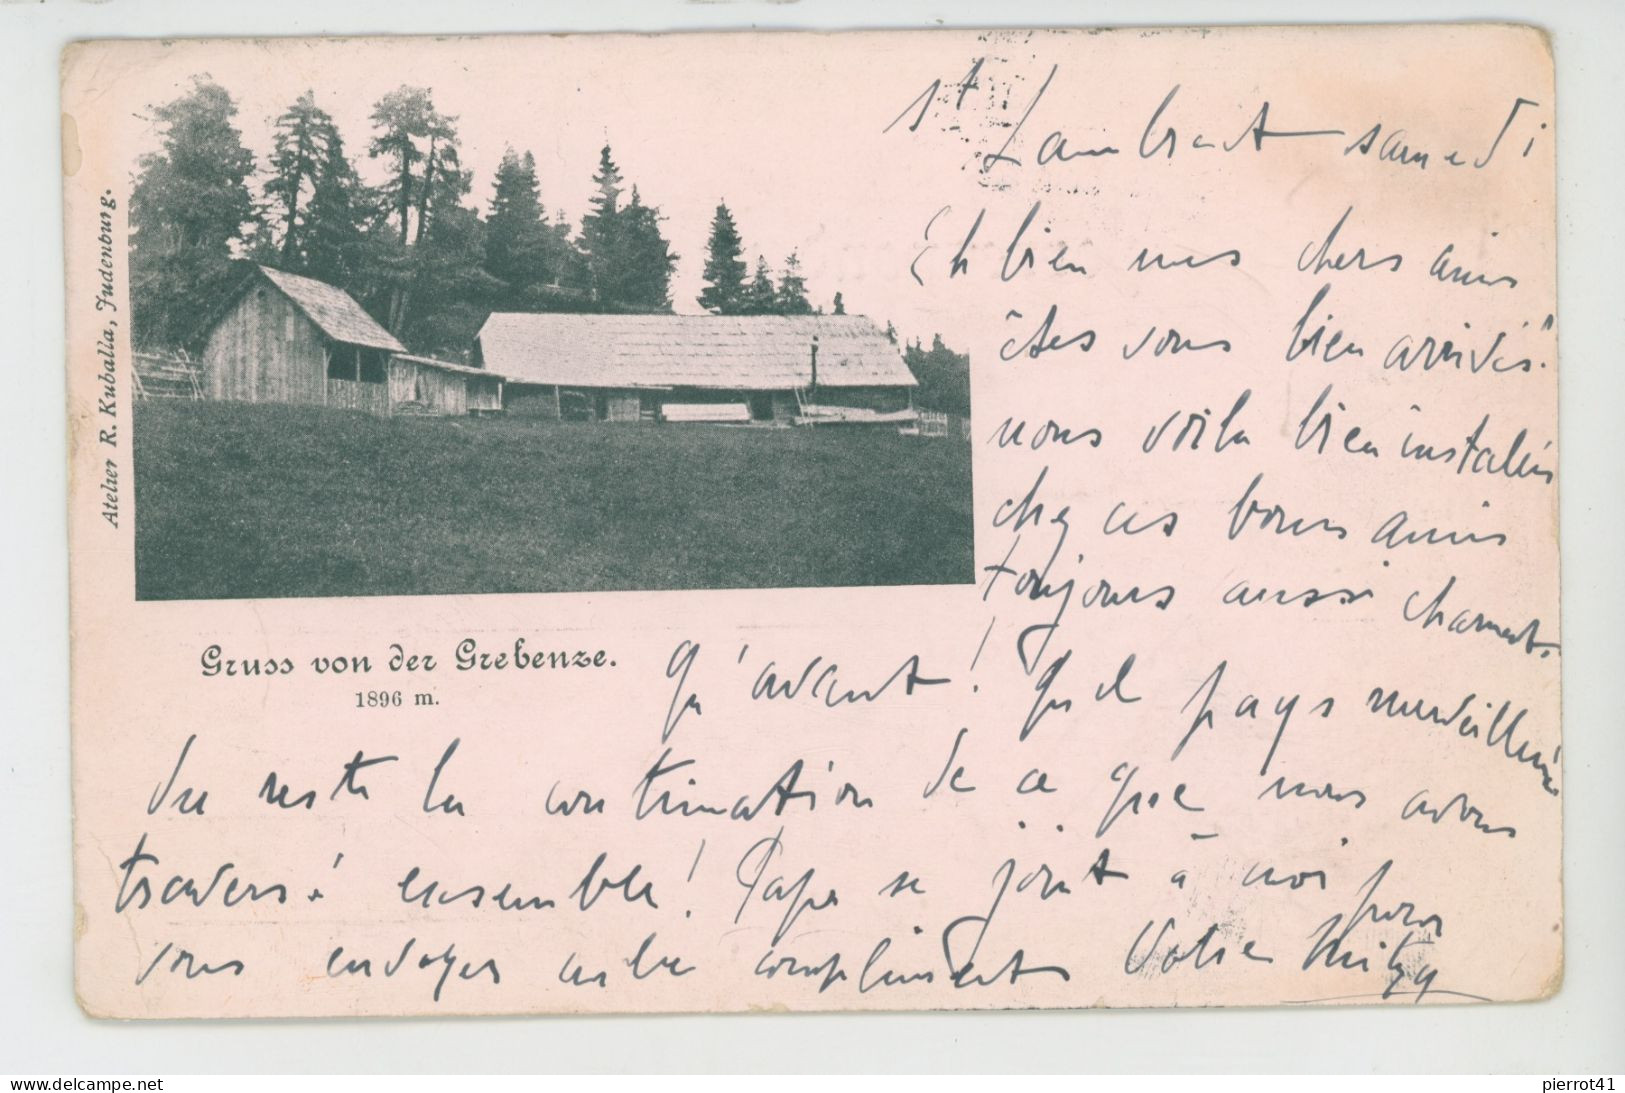 Atelier R. Kuballa, Judenburg.
Gruss von der Grebenze.
1896 m.
St Lambrecht samedi
Eh bien mes chers amis
êtes vous bien arrivés?
nous voilà bien installés
chez ces bons amis
toujours aussi charmants
qu'avant! Quel pays merveilleux
du reste la continuation de ce que nous avons
traversé ensemble! Papa se joint à moi pour
vous envoyer mille compliments Votre Mitzy
pierrot41
www.delcampe.net